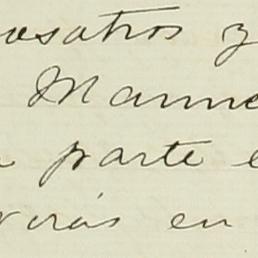 osotros y
Manue
parte e
virás en